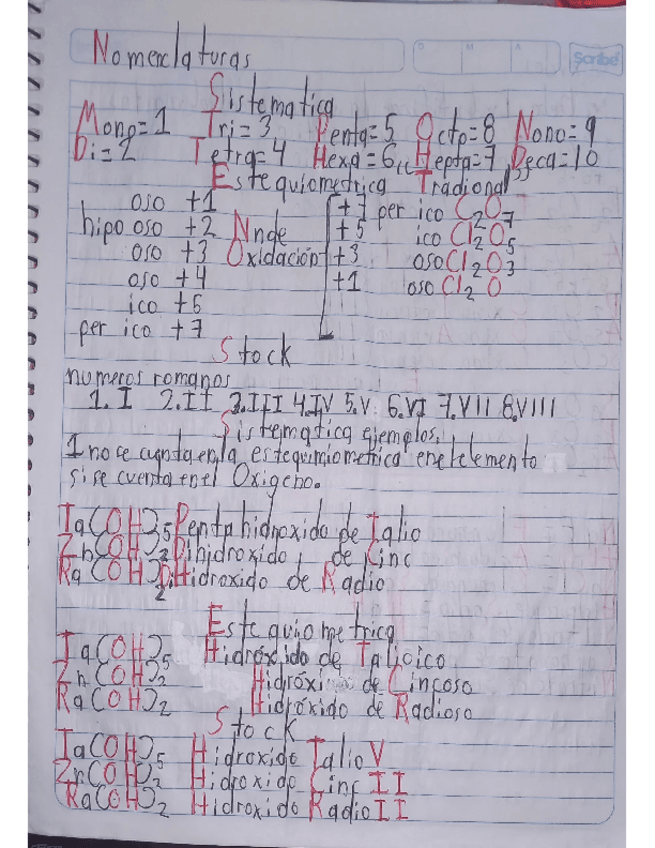 Nomenclaturas
D M A Scribe
Sistematica
Mono=1 Tri=3 Penta=5 Octo=8 Nono=9
Di=2 Tetra=4 Hexa=6 Hepta=7 Deca=10
Estequiometrica "Tradional"
oso +1 +7 per ico C2O7
hipo oso +2 N nde +5 ico Cl2O5
oso +3 Oxidación +3 oso Cl2O3
oso +4 +1 oso Cl2O
ico +6
per ico +7
Stock
numeros romanos
1.I 2.II 3.III 4.IV 5.V 6.VI 7.VII 8.VIII
Sistematica ejemplos.
1 no se cuenta en la estequimiometrica en el elemento
si se cuenta en el Oxigeno.
Ta(OH)5 Pentahidroxido de Talio
Zn(OH)2 Dihidroxido de Cinc
Ra(OH)2 DiHidroxido de Radio
Estequiometrica
Ta(OH)5 Hidróxido de Talioico
Zn(OH)2 Hidróxido de Cincoso
Ra(OH)2 Hidróxido de Radioso
Stock
Ta(OH)5 Hidroxido Talio V
Zn(OH)2 Hidroxido Cinc II
Ra(OH)2 Hidroxido Radio II